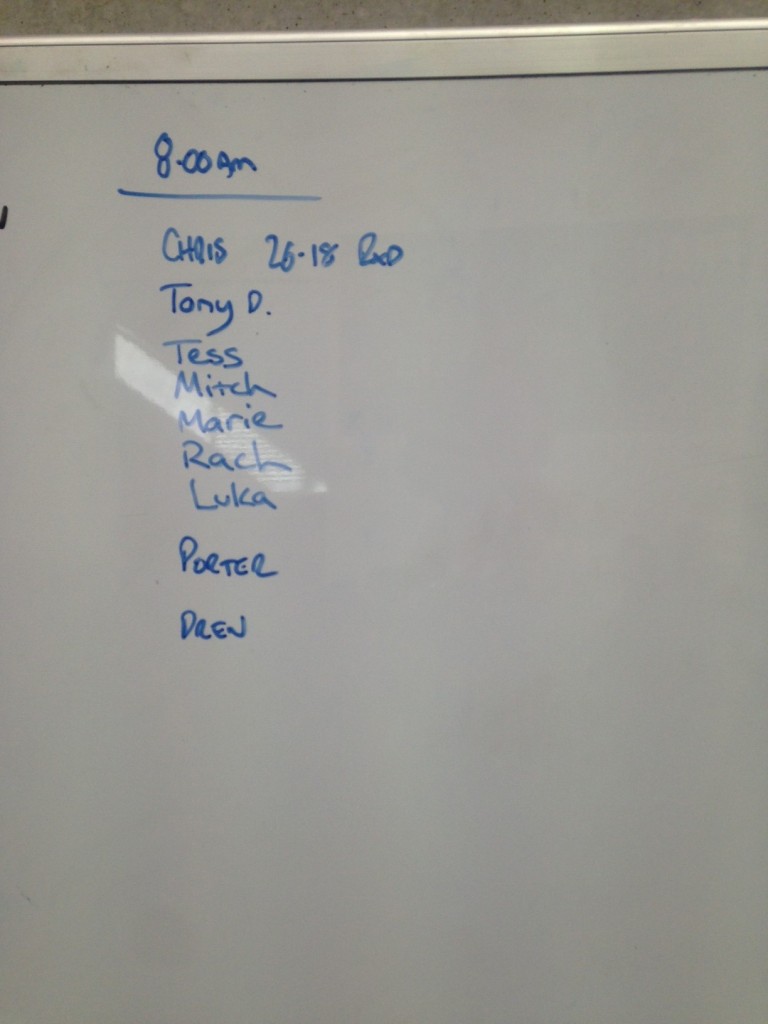 8.00am
CHRIS 26.18 RxD
Tony D.
Tess
Mitch
Marie
Rach
Luka
PORTER
DREW